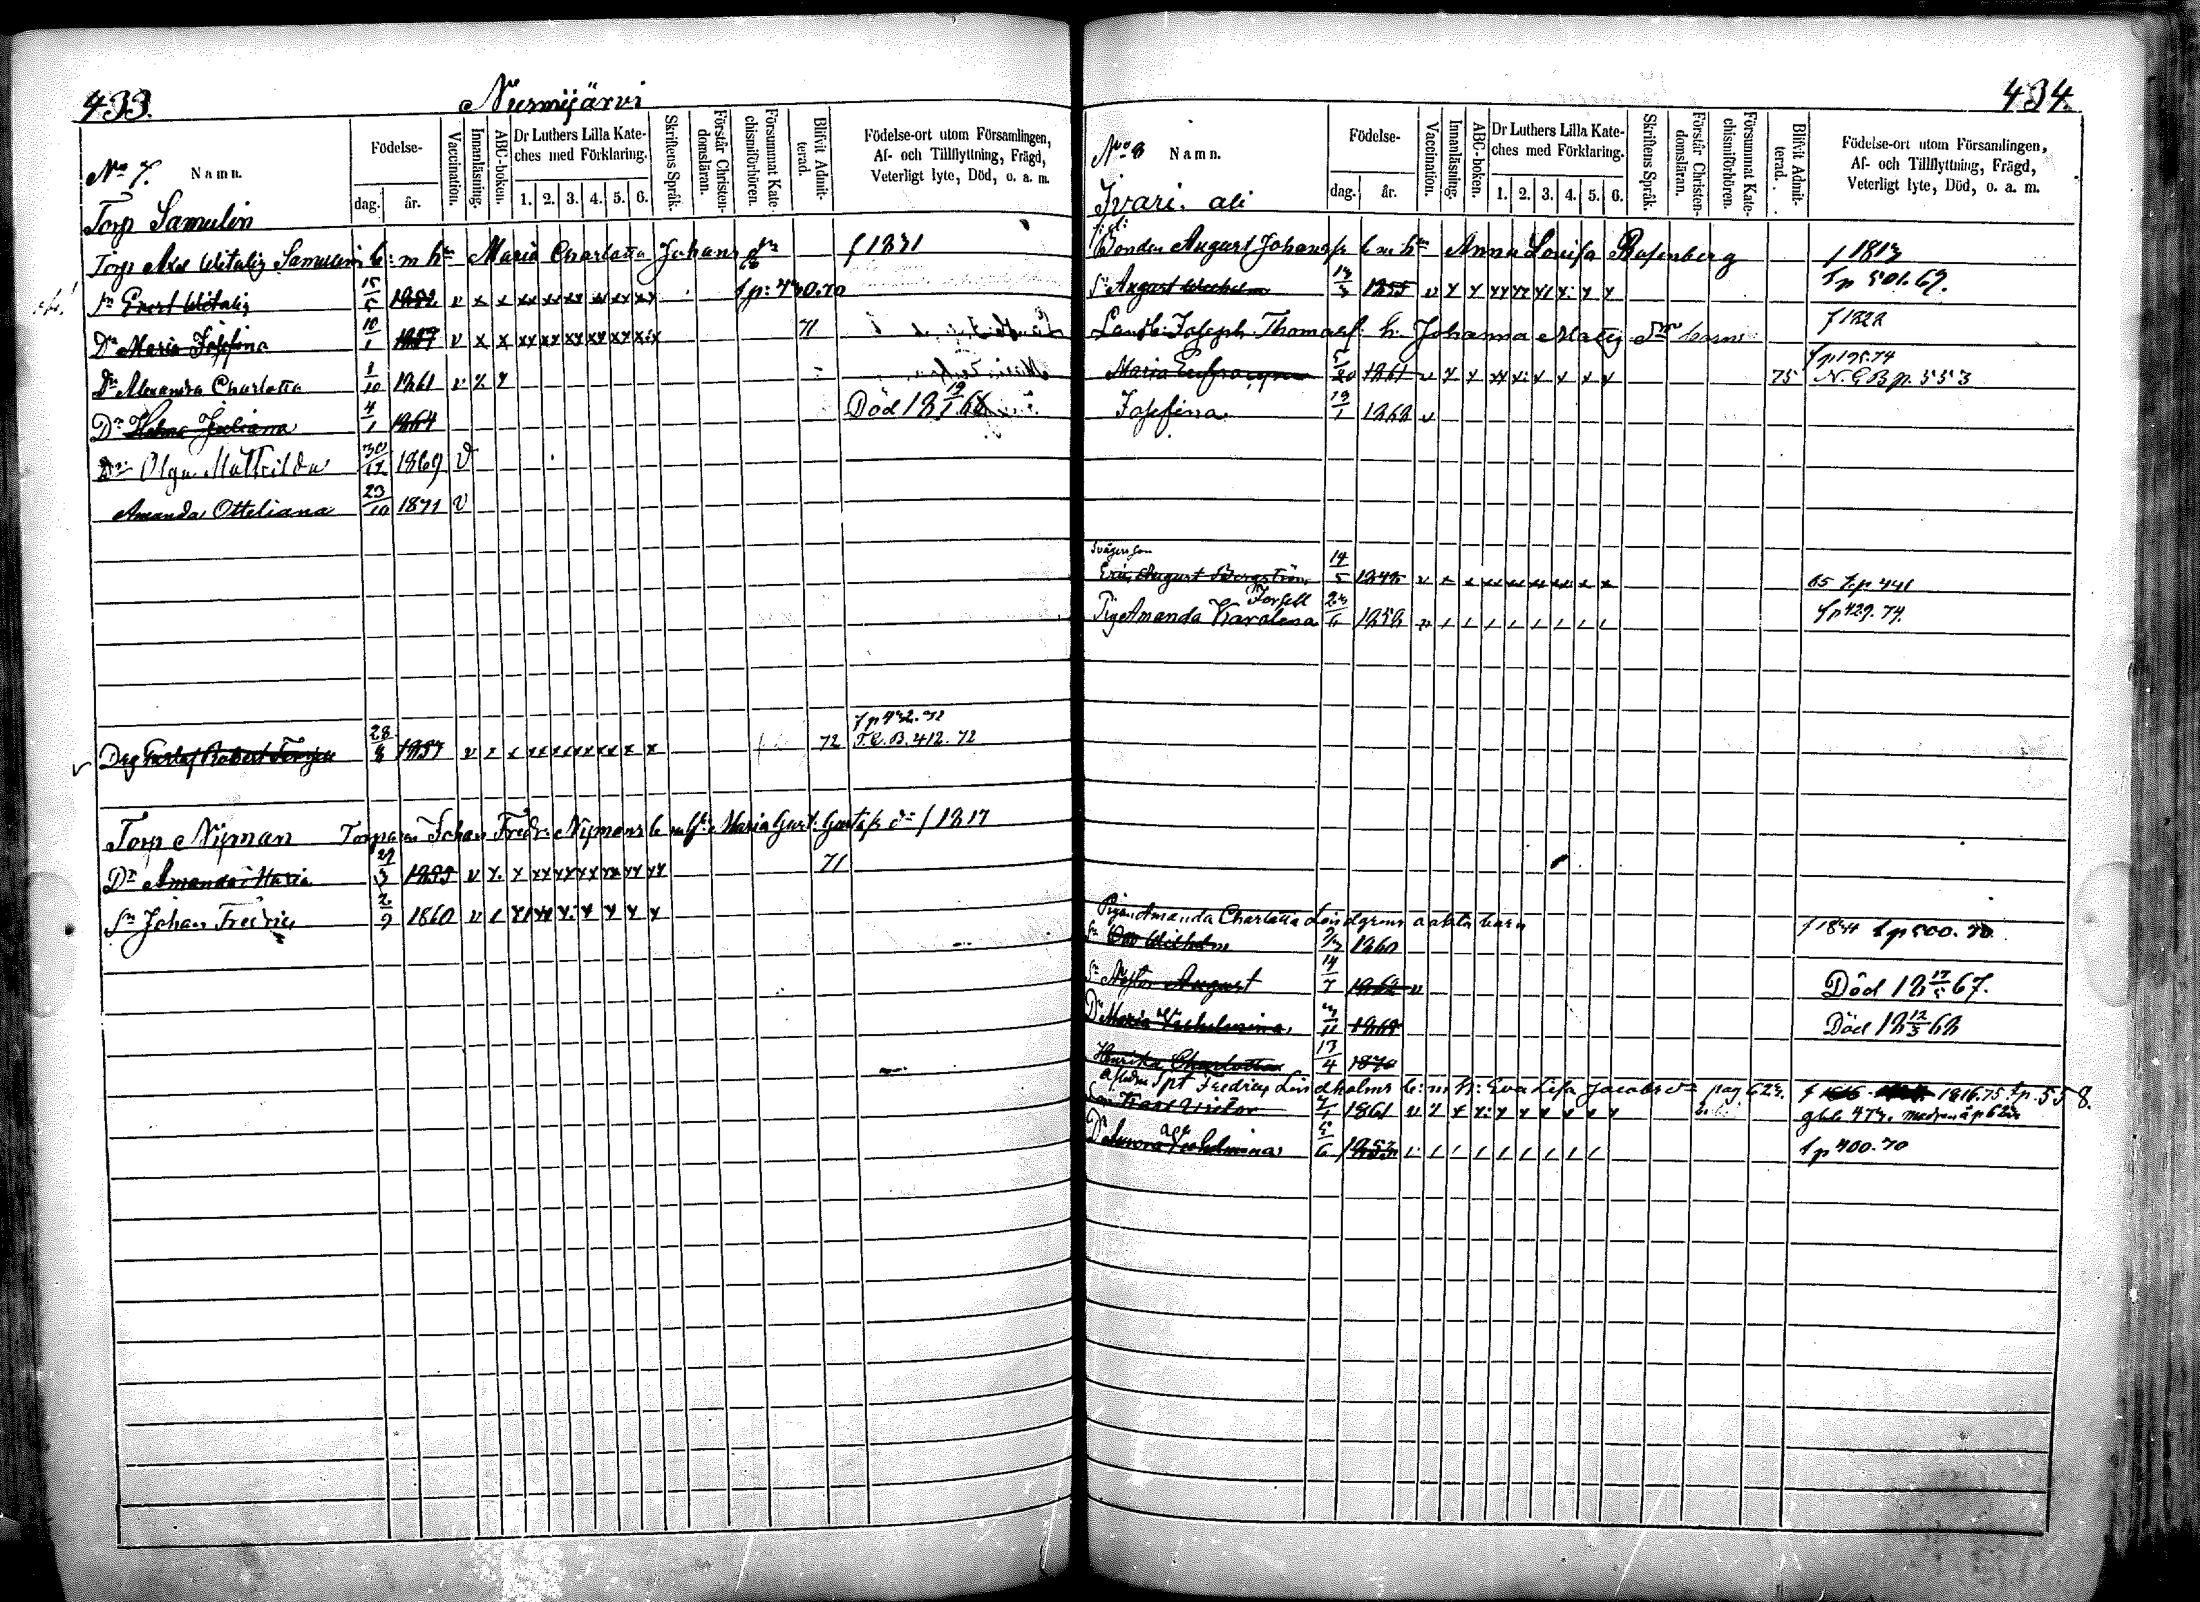 433.
Nurmijärvi
No 7. Namn.
Födelse-
dag. år.
Vaccination.
Innanläsning.
ABC-boken.
Dr Luthers Lilla Kate-
ches med Förklaring.
1. 2. 3. 4. 5. 6.
Skriftens Språk.
Förstår Christen-
domsläran.
Försummat Kate-
chismiförhören.
Blifvit Admit-
terad.
Födelse-ort utom Församlingen,
Af- och Tillflyttning, Frägd,
Veterligt lyte, Död, o. a. m.
Torp Samulin
Torp Axel Witalis Samulins b: m hu Maria Charlotta Johans dr f 1831
Sn Evert Witalis 15/5 1852 v x x xx xx xx xx xx xx fp: 430.70
Dr Maria Josefina 10/1 1857 v x x xx xx xx xx xx xix 71
Dr Alexandra Charlotta 1/10 1861 v x x
Dr Helma Juliana 4/1 1864 Död 18 19/1 68
Dr Olga Mathilda 30/12 1869 v
Amanda Otteliana 23/10 1871 v
fp 432.72
Drg Gustaf Robert 28/8 1857 v x x xx xx xx xx x x 72 F.C.B. 412.72
Torp Nyman Torparen Johan Fredr: Nymans b m h: Maria Gust. Gustafs dr f 1817
Dr Amanda Maria 27/3 1855 v x x xx xx xx xx xx xx 71
Sn Johan Fredric 2/9 1860 v x xx x: x x x x
434.
No 8 Namn.
Födelse-
dag. år.
Vaccination.
Innanläsning.
ABC-boken.
Dr Luthers Lilla Kate-
ches med Förklaring.
1. 2. 3. 4. 5. 6.
Skriftens Språk.
Förstår Christen-
domsläran.
Försummat Kate-
chismiförhören.
Blifvit Admit-
terad.
Födelse-ort utom Församlingen,
Af- och Tillflyttning, Frägd,
Veterligt lyte, Död, o. a. m.
Ivari. ali
Bonden August Johanss b m hu Anna Lovisa Rosenberg f 1813
Sn August Wilhelm 13/3 1855 v x x xx xx xi x: x x fp 501.69.
Landb: Joseph Thomass. h. Johanna Mattis dr barn f 1822
fp 195.74
Maria 5/10 1861 v x x xx x: x x x x 75 N.C.B. p. 553
Josefina 19/1 1868 v
Svågers son
Eric August Bergström 14/5 1848 v x x xx xx xx xx x x 65 fp 441
Forsell
Pig Amanda Karolina 23/6 1858 v fp 429.74.
Pigan Amanda Charlotta Lindgrens oäkta barn f 1841 fp 500.70
Sn Otto Wilhelm 9/3 1860
Sn Nestor August 14/7 1862 v Död 18 17/5 67.
Dr Maria Wilhelmina 3/11 1868 Död 18 12/3 68
Henrika Charlotta 13/4 1870
afledne Spt Fredric Lindholms b: m h: Eva Lisa Jacobs dr pag 623. f 1816.75 fp. 558.
Son Frans Victor 2/1 1861 v x x x: x x x x x
Dr Serena Wilhelmina 5/6 1853 fp 400.70